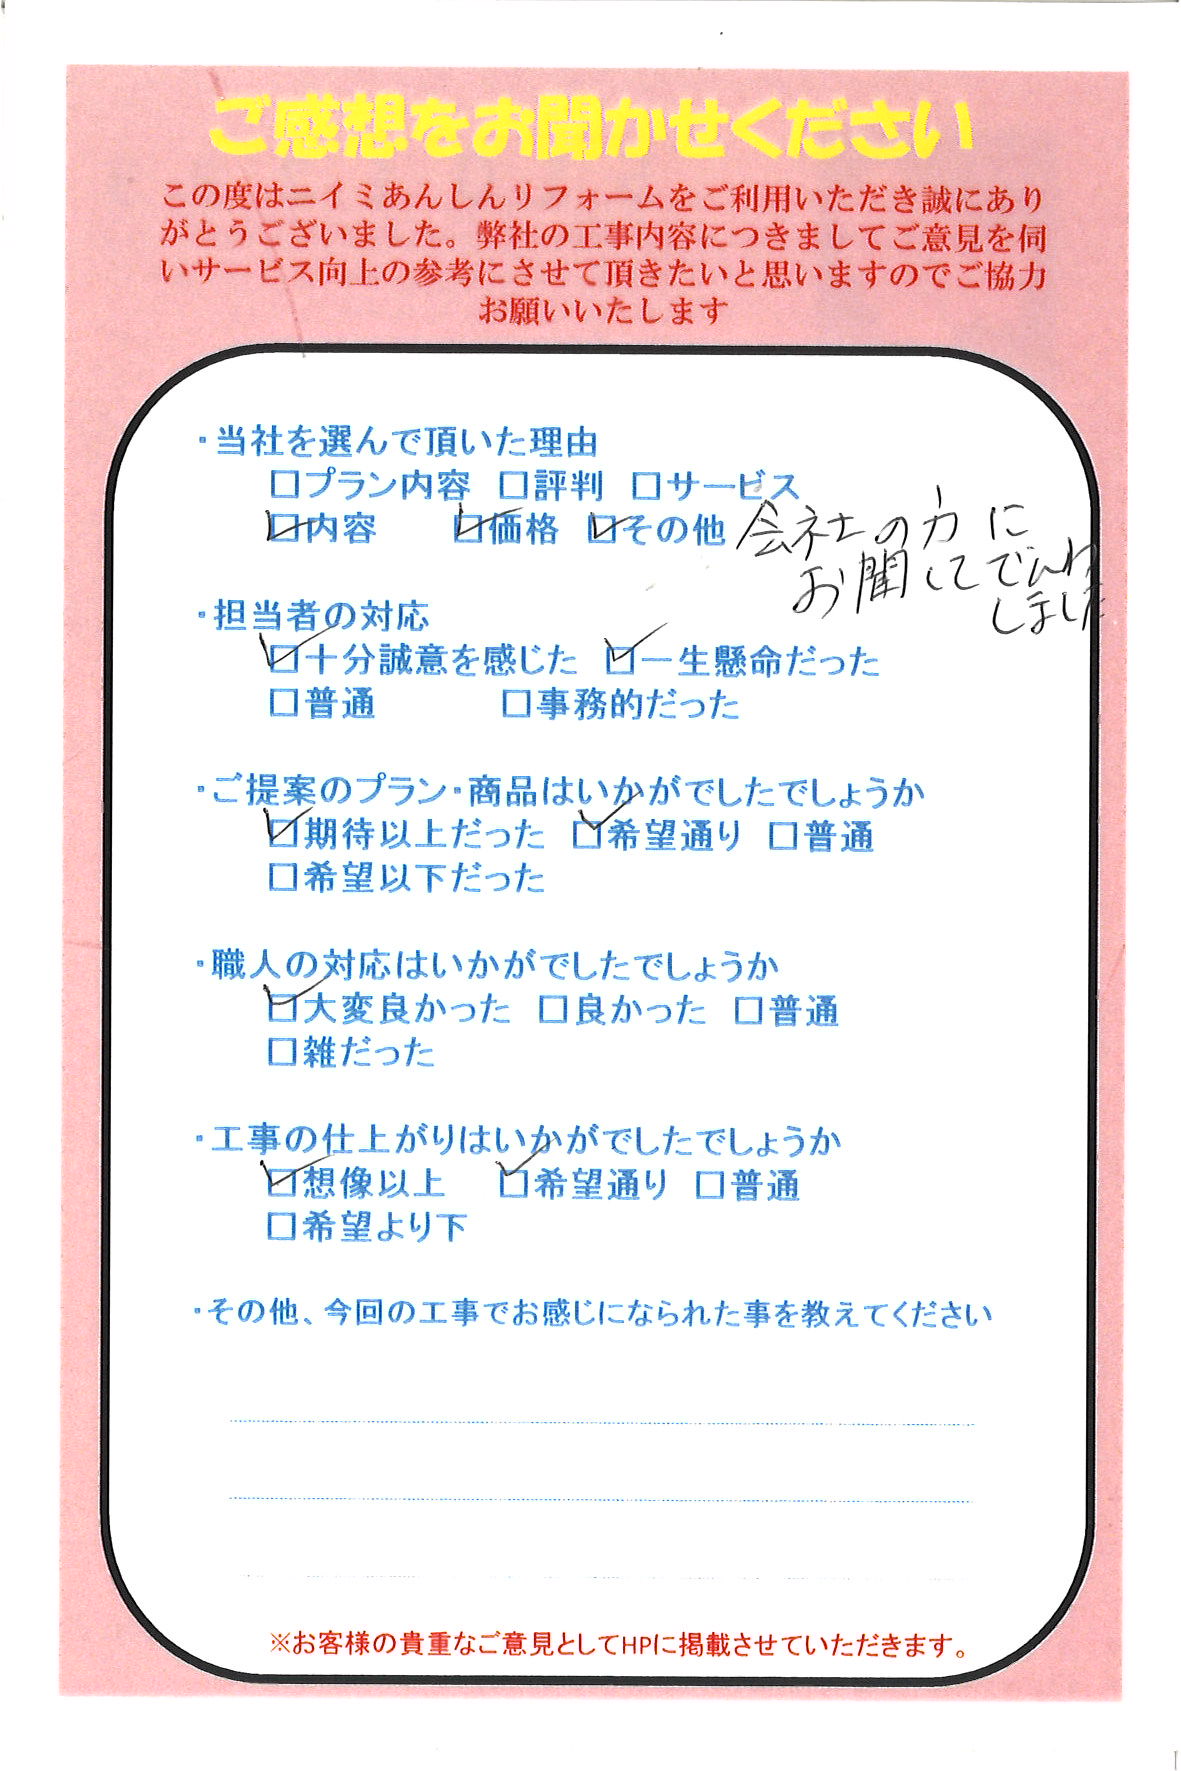 ご感想をお聞かせください
この度はニイミあんしんリフォームをご利用いただき誠にあり
がとうございました。弊社の工事内容につきましてご意見を伺
いサービス向上の参考にさせて頂きたいと思いますのでご協力
お願いいたします
・当社を選んで頂いた理由
□プラン内容 □評判 □サービス
☑内容 ☑価格 ☑その他 会社の方に
お聞してでんわ
しました
・担当者の対応
☑十分誠意を感じた ☑一生懸命だった
□普通 □事務的だった
・ご提案のプラン・商品はいかがでしたでしょうか
☑期待以上だった ☑希望通り □普通
□希望以下だった
・職人の対応はいかがでしたでしょうか
☑大変良かった □良かった □普通
□雑だった
・工事の仕上がりはいかがでしたでしょうか
☑想像以上 ☑希望通り □普通
□希望より下
・その他、今回の工事でお感じになられた事を教えてください
※お客様の貴重なご意見としてHPに掲載させていただきます。